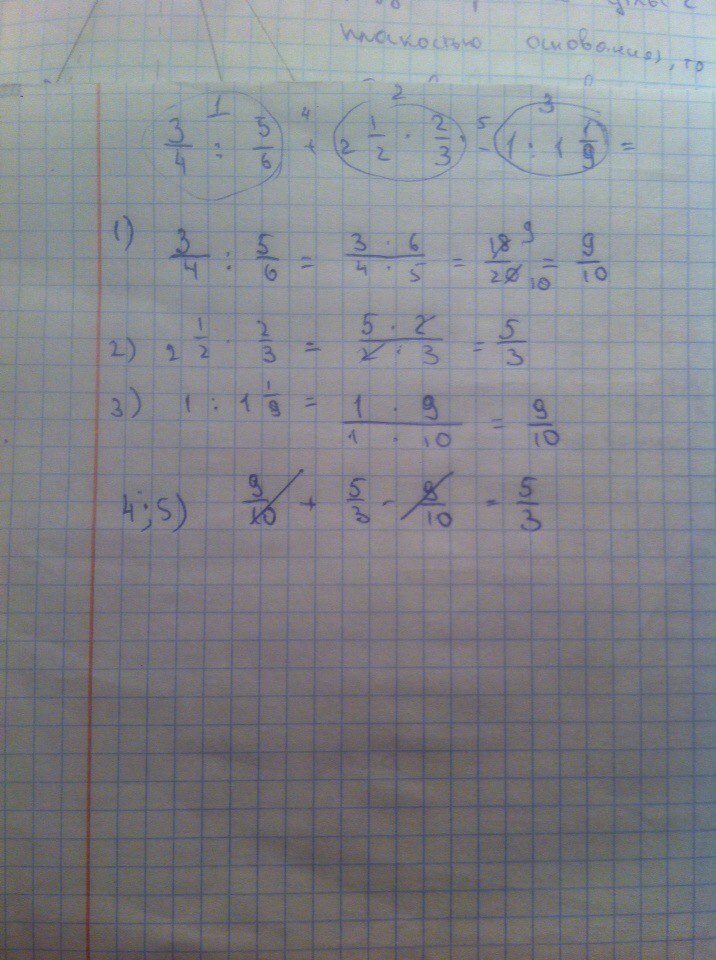 плоскостью основания), то
1 4 2 5 3
3/4 : 5/6 + 2 1/2 · 2/3 - 1 : 1 1/9 =
1) 3/4 : 5/6 = 3 · 6 / 4 · 5 = 18 9 / 20 10 = 9/10
2) 2 1/2 · 2/3 = 5 · 2 / 2 · 3 = 5/3
3) 1 : 1 1/9 = 1 · 9 / 1 · 10 = 9/10
4;5) 9/10 + 5/3 - 9/10 = 5/3